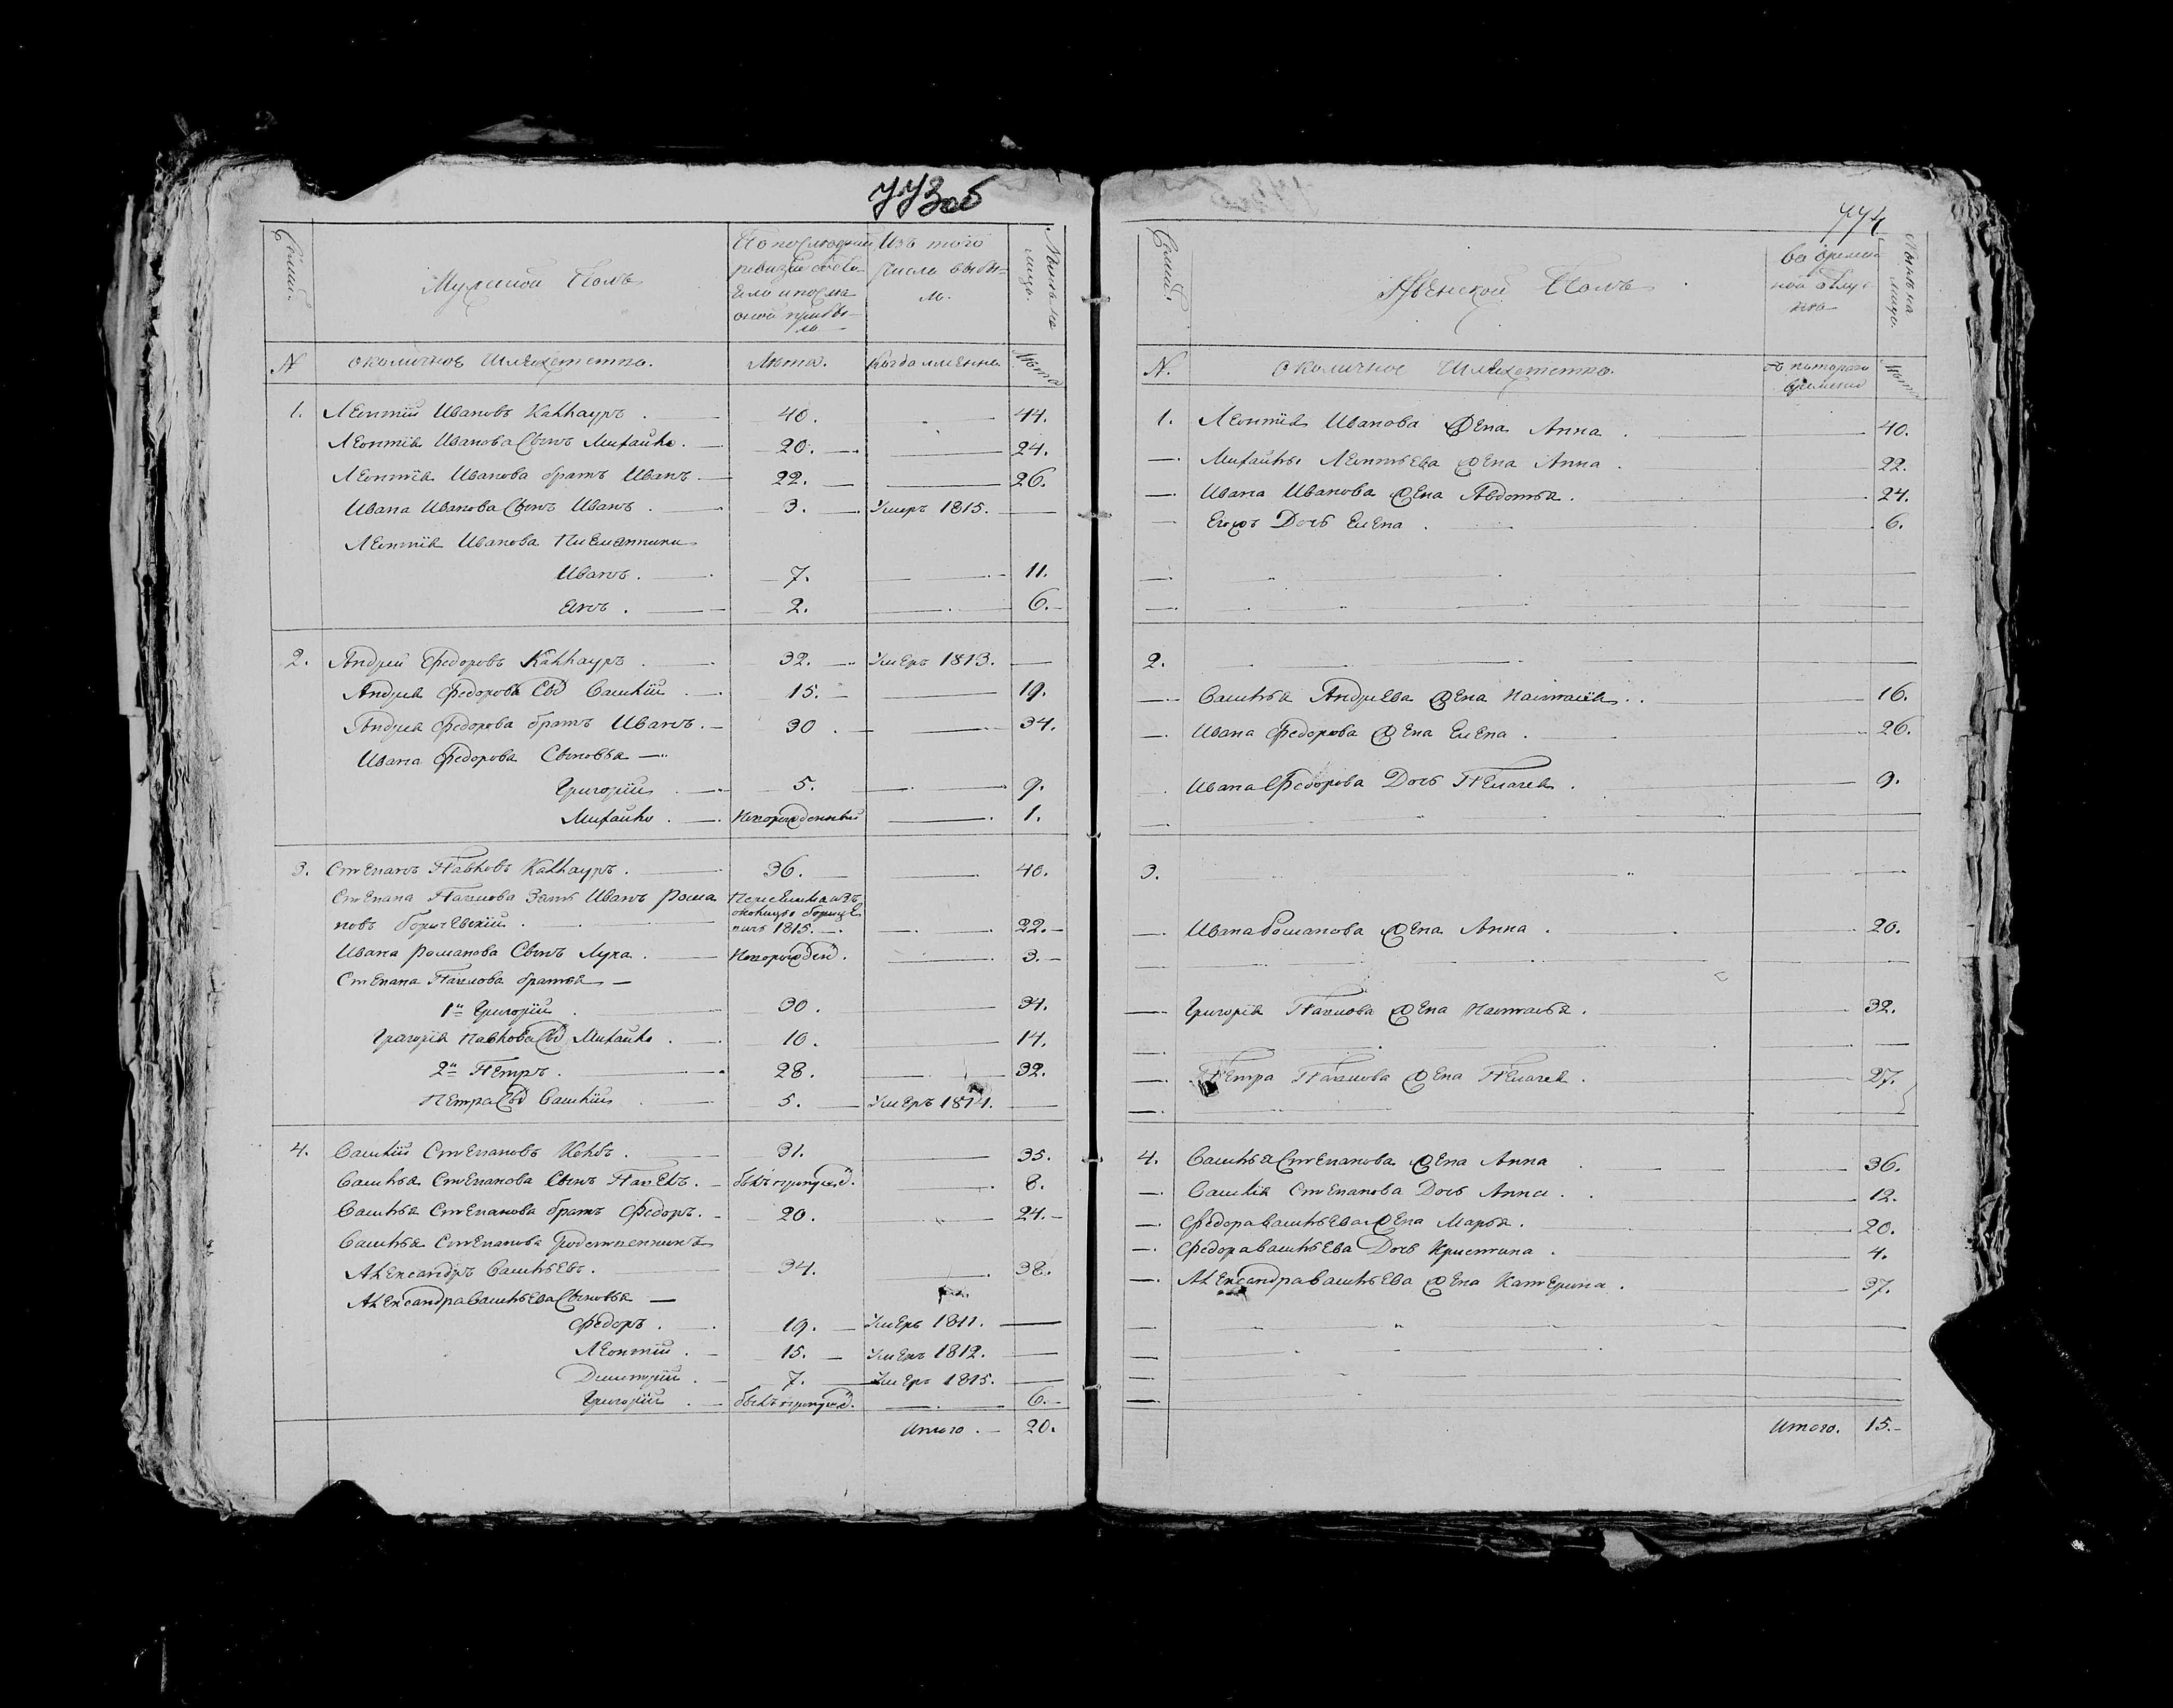 773об
Семьи.
Мужеской Полъ
По последней
ревизіи состо-
яло и после
оной прибы-
ло
Изъ того
числа выбы-
ло.
Нынѣ на
лицо.
N
околичное Шляхетство.
Лѣта.
Когда именно.
Лѣта
1. Леонтій Ивановъ Каллауръ. 40. 44.
Леонтія Иванова Сынъ Михайло. 20. 24.
Леонтія Иванова братъ Иванъ. 22. 26.
Ивана Иванова Сынъ Иванъ. 3. Умеръ 1815.
Леонтія Иванова Племянники
Иванъ. 7. 11.
Янъ. 2. 6.
2. Андрей Федоровъ Каллауръ. 32. Умеръ 1813.
Андрея Федорова Сы͠ъ Василій. 15. 19.
Андрея Федорова братъ Иванъ. 30. 34.
Ивана Федорова Сыновья
Григорій. 5. 9.
Михайло. Новорожденный 1.
3. Степанъ Павловъ Каллауръ. 36. 40.
Степана Павлова Зать Иванъ Рома
новъ 1815. 22.
Ивана Романова Сынъ Лука. Новорожд. 3.
Степана Павлова братья
1й Григорій 30. 34.
Григорія Павлова Михайло. 10. 14.
2й Петръ. 28. 32.
Петра Василій 5. Умеръ 1814.
4. Василій Степановъ 31. 35.
Василья Степанова Сынъ Павелъ. былъ пропущ. 8.
Василья Степанова братъ Федоръ. 20. 24.
Василья Степанова Родственникъ
Александръ Васильевъ. 34. 38.
Александра Васильева Сыновья
Федоръ. 19. Умеръ 1811.
Леонтій. 15. Умеръ 1812.
Димитрій. 7. Умеръ 1815.
Григорій. былъ пропущ. 6.
Итого. 20.
774
Семьи.
Женской Полъ
Во времен-
ной отлуч-
ке
Нынѣ на
лицо.
N.
околичное Шляхетство.
Съ котораго
времени
Лѣта
1. Леонтія Иванова жена Анна. 40.
Михайлы Леонтьева жена Анна. 22.
Ивана Иванова жена Авдотья. 24.
Егожъ Дочь Елена. 6.
2.
Василья Андреева жена Настасія. 16.
Ивана Федорова жена Елена. 26.
Ивана Федорова Дочь Пелагея. 9.
3.
Ивана Романова жена Анна. 20.
Григорія Павлова жена Настасья. 32.
Петра Павлова жена Пелагея. 27.
4. Василья Степанова жена Анна 36.
Василія Степанова Дочь Анна. 12.
Федора Васильева жена Марья. 20.
Федора Васильева Дочь Кристина. 4.
Александра Васильева жена Катерина. 37.
Итого. 15.